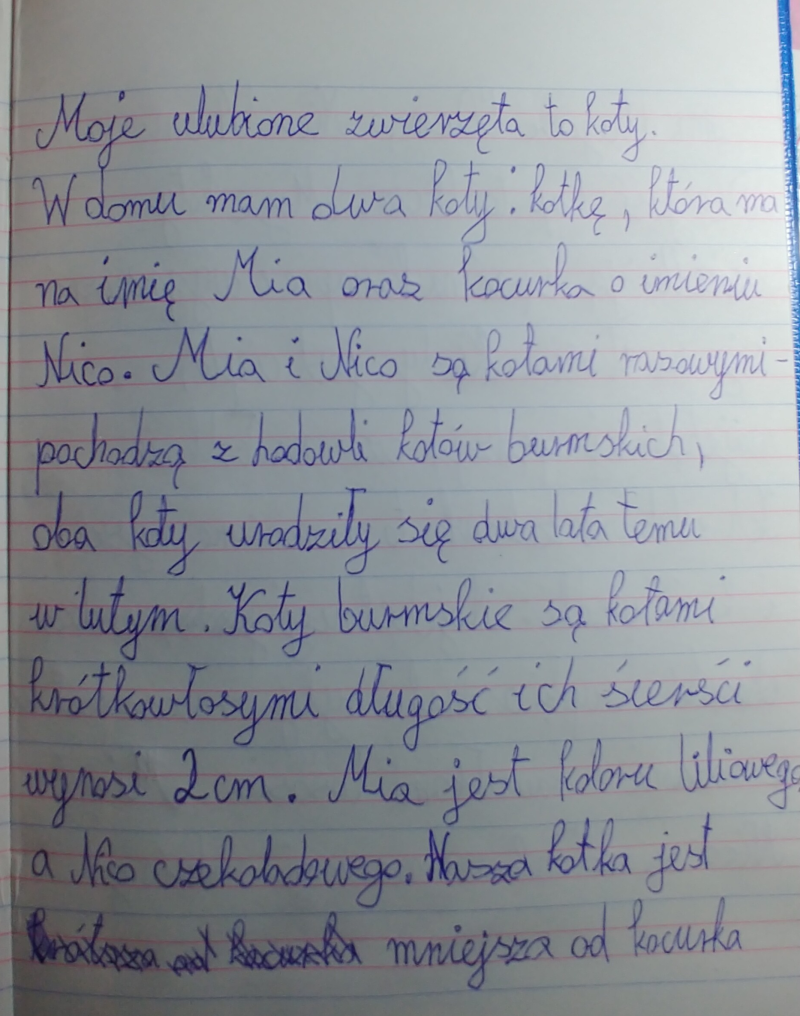 Moje ulubione zwierzęta to koty.
W domu mam dwa koty: kotkę, która ma
na imię Mia oraz kocurka o imieniu
Nico. Mia i Nico są kotami rasowymi-
pochodzą z hodowli kotów burmskich,
oba koty urodziły się dwa lata temu
w lutym. Koty burmskie są kotami
krótkowłosymi długość ich sierści
wynosi 2 cm. Mia jest koloru liliowego
a Nico czekoladowego. Nasza kotka jest
mniejsza od kocurka